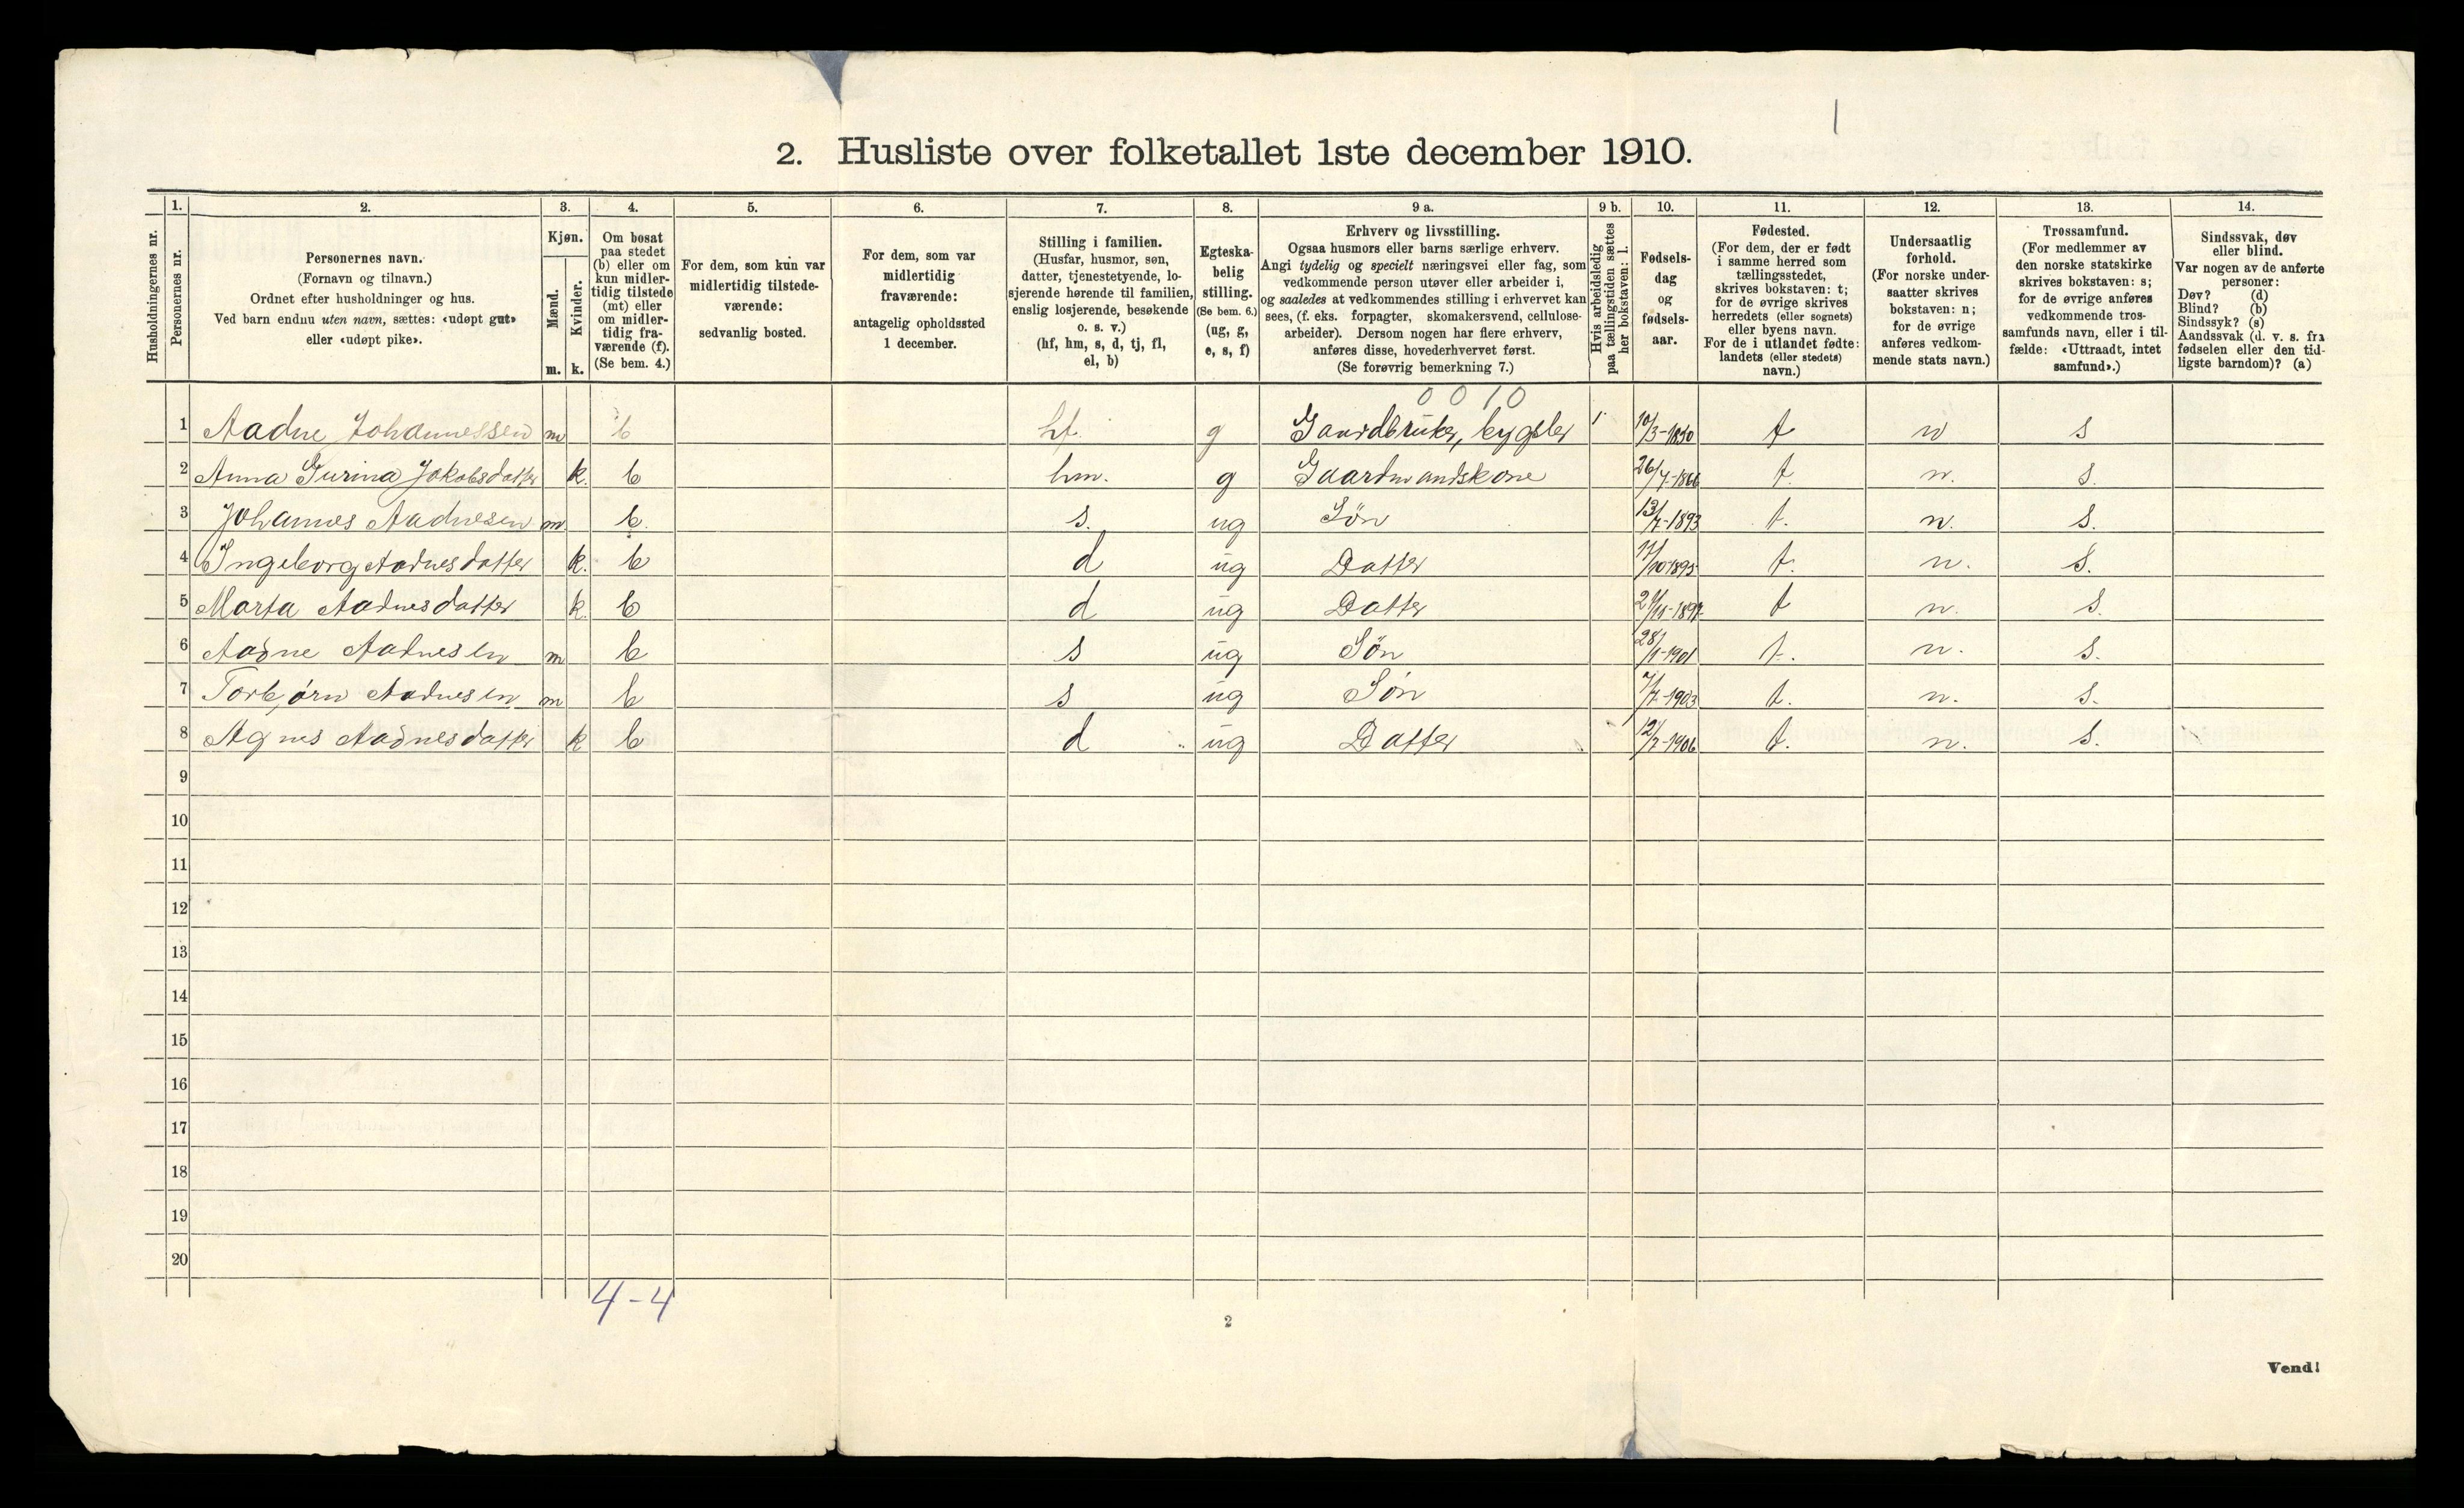 2. Husliste over folketallet 1ste december 1910.
1. 2. 3. 4. 5. 6. 7. 8. 9 a. 9 b. 10. 11. 12. 13. 14.
Husholdningernes nr.
Personernes nr.
Personernes navn.
(Fornavn og tilnavn.)
Ordnet efter husholdninger og hus.
Ved barn endnu uten navn, sættes: «udøpt gut»
eller «udøpt pike».
Kjøn.
Mænd.
Kvinder.
m. k.
Om bosat
paa stedet
(b) eller om
kun midler-
tidig tilstede
(mt) eller
om midler-
tidig fra-
værende (f).
(Se bem. 4.)
For dem, som kun var
midlertidig tilstede-
værende:
sedvanlig bosted.
For dem, som var
midlertidig
fraværende:
antagelig opholdssted
1 december.
Stilling i familien.
(Husfar, husmor, søn,
datter, tjenestetyende, lo-
sjerende hørende til familien,
enslig losjerende, besøkende
o. s. v.)
(hf, hm, s, d, tj, fl,
el, b)
Egteska-
belig
stilling.
(Se bem. 6.)
(ug, g,
e, s, f)
Erhverv og livsstilling.
Ogsaa husmors eller barns særlige erhverv.
Angi tydelig og specielt næringsvei eller fag, som
vedkommende person utøver eller arbeider i,
og saaledes at vedkommendes stilling i erhvervet kan
sees, (f. eks. forpagter, skomakersvend, cellulose-
arbeider). Dersom nogen har flere erhverv,
anføres disse, hovederhvervet først.
(Se forøvrig bemerkning 7.)
Hvis arbeidsledig
paa tællingstiden sættes
her bokstaven: l.
Fødsels-
dag
og
fødsels-
aar.
Fødested.
(For dem, der er født
i samme herred som
tællingsstedet,
skrives bokstaven: t;
for de øvrige skrives
herredets (eller sognets)
eller byens navn.
For de i utlandet fødte:
landets (eller stedets)
navn.)
Undersaatlig
forhold.
(For norske under-
saatter skrives
bokstaven: n;
for de øvrige
anføres vedkom-
mende stats navn.)
Trossamfund.
(For medlemmer av
den norske statskirke
skrives bokstaven: s;
for de øvrige anføres
vedkommende tros-
samfunds navn, eller i til-
fælde: «Uttraadt, intet
samfund».)
Sindssvak, døv
eller blind.
Var nogen av de anførte
personer:
Døv? (d)
Blind? (b)
Sindssyk? (s)
Aandssvak (d. v. s. fra
fødselen eller den tid-
ligste barndom)? (a)
0 0 1 0
1 Aadne Johannessen m b hf. g Gaardbruker, bygsler 1 10/3-1850 t n s
2 Anna Gurina Jakobsdatter k. b hm. g Gaardmandskone 26/7-1866 t. n. s.
3 Johannes Aadnesen m. b. s. ug Søn 13/7-1893 t. n. s.
4 Ingeborg Aadnesdatter k. b d ug Datter 17/10-1895 t. n. s.
5 Marta Aadnesdatter k. b d ug Datter 27/11-1897 t n. s.
6 Aadne Aadnesen m b s ug Søn 28/1-1901 t. n. s.
7 Torbjørn Aadnesen m b s ug Søn 7/7-1903 t. n. s.
8 Agnes Aadnesdatter k b d ug Datter 12/7-1906 t. n. s.
9
10
11
12
13
14
15
16
17
18
19
20
4-4
2
Vend!